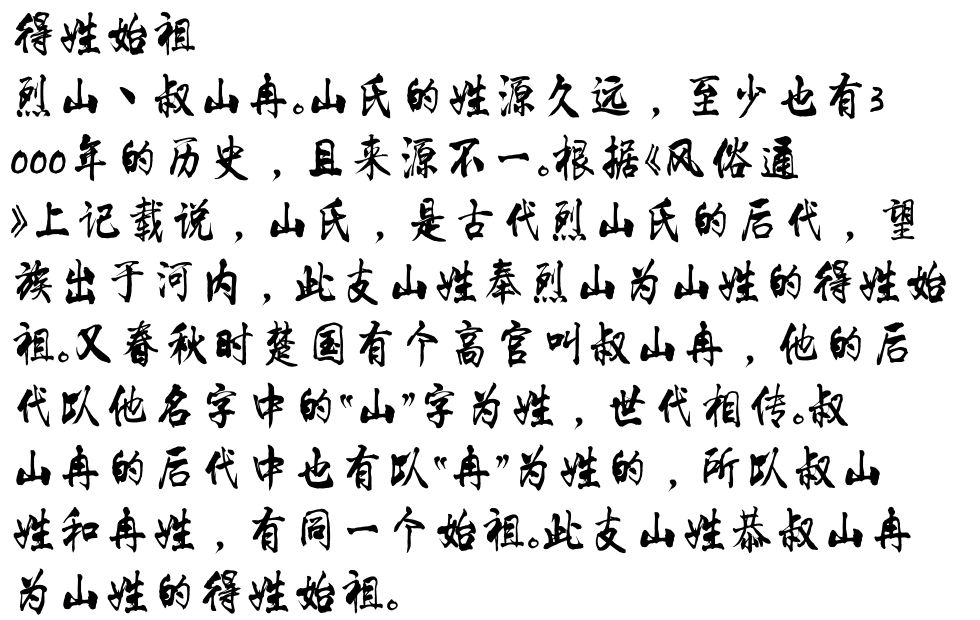 得姓始祖
烈山、叔山冉。山氏的姓源久远，至少也有3
000年的历史，且来源不一。根据《风俗通
》上记载说，山氏，是古代烈山氏的后代，望
族出于河内，此支山姓奉烈山为山姓的得姓始
祖。又春秋时楚国有个高官叫叔山冉，他的后
代以他名字中的“山”字为姓，世代相传。叔
山冉的后代中也有以“冉”为姓的，所以叔山
姓和冉姓，有同一个始祖。此支山姓恭叔山冉
为山姓的得姓始祖。